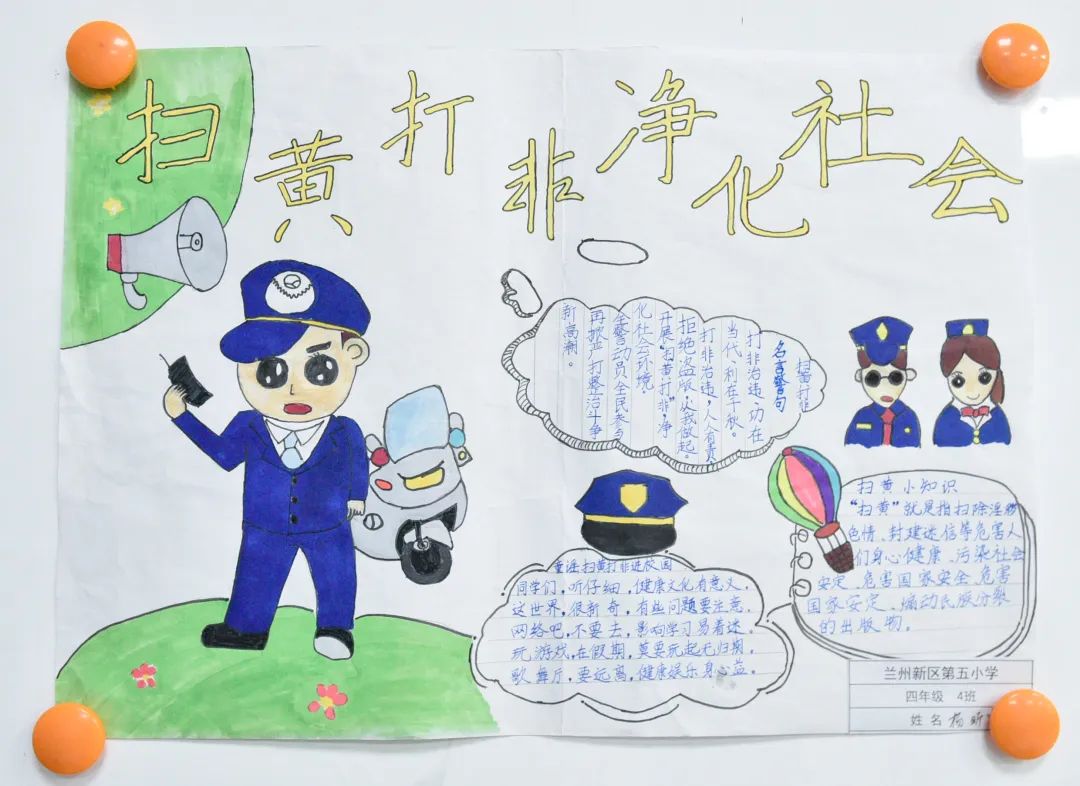 扫黄打非净化社会
扫黄打非
名言警句
打非治违,功在
当代,利在千秋。
打非治违,人人有责
拒绝盗版,从我做起。
开展“扫黄打非”,净
化社会环境。
全警动员全民参与
再掀严打整治斗争
新高潮。
童谣扫黄打非进校园
同学们,听仔细,健康文化有意义。
这世界,很新奇,有些问题要注意。
网络吧,不要去,影响学习易着迷。
玩游戏,在假期,莫要玩起无归期。
歌舞厅,要远离,健康娱乐身心益。
扫黄小知识
“扫黄”就是指扫除淫秽
色情、封建迷信等危害人
们身心健康、污染社会
安定、危害国家安全、危害
国家安定、煽动民族分裂
的出版物。
兰州新区第五小学
四年级 4班
姓名 杨